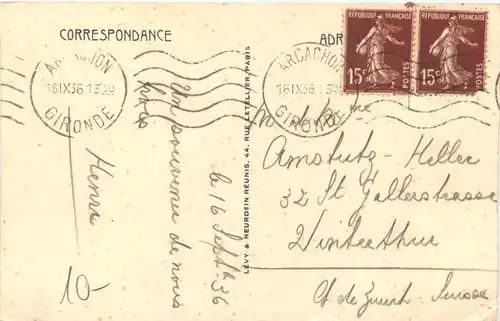 CORRESPONDANCE
ADR
ARCACHON
16 IX 36 13 20
GIRONDE
ARCACHON
16 IX 36 13
GIRONDE
REPUBLIQUE FRANÇAISE
15c
POSTES
REPUBLIQUE FRANÇAISE
15c
POSTES
le 16 Sept. 36
Un souvenir de nous
Henri
10-
LEVY & NEURDEIN RÉUNIS, 44, RUE LETELLIER, PARIS
Amstutz-Heller
32 St Gallerstrasse
Winterthur
Ct de Zurich - Suisse